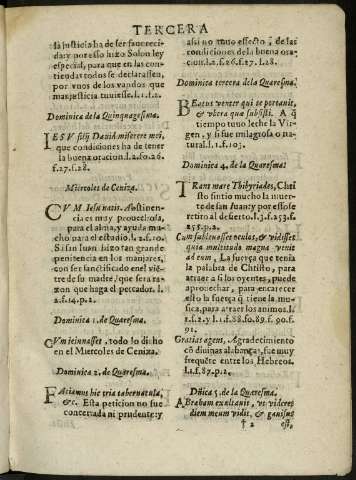 TERCERA
la justicia ha de ser fauoreci-
da: y por esso hizo Solon ley
especial, para que en las con-
tiendas todos se declarassen,
por vnos de los vandos que
mas justicia tuuiesse.l.1.f.2.
Dominica de la Quinquagesima.
IESV fili Dauid miserere mei,
que condiciones ha de tener
la buena oracion.l.2.fo.26.
f.27.f.28.
Miercoles de Ceniza.
CVM Ieiunatis. Austinen-
cia es muy prouechosa,
para el alma, y ayuda mu-
cho para el estudio.l.2.f.10.
S. si san Iuan hizo tan grande
penitencia en los manjares,
con ser sanctificado en el vié-
tre de su madre, que sera ra-
zon que haga el peccador. l.
2.f.14.p.2.
Dominica 1. de Quaresma.
CVm ieiunasset, todo lo dicho
en el Miercoles de Ceniza.
Dominica 2. de Quaresma.
FAciamus hic tria tabernacula,
&c. Esta peticion no fue
concertada ni prudente: y
assi no tuuo effecto, de las
condiciones de la buena ora-
cion.l.2.f.26.f.27.f.28.
Dominica tercera de la Quaresma.
BEatus venter qui te portauit,
& vbera quæ suxisti. A que
tiempo tuuo leche la Vir-
gen, y si fue milagrosa o na-
tural.l.1.f.103.
Dominica 4. de la Quaresma.
TRans mare Thibyriades, Chri
sto sintio mucho la muer-
te de san Iuan, y por esso se
retiro al desierto.l.3.f.253.f.
255.p.2.
Cum subleuasset oculos, & vidisset
quia multitudo magna venit
ad eum, La fuerça que tenia
la palabra de Christo, para
atraer a si los oyentes, puede
aprouechar, para encarecer
esto la fuerça q̃ tiene la mu-
sica, para atraer los animos.l.
1.f.2.y l.1.f.88.fo.89.f.90.f.
91.
Gratias agens, Agradecimiento
cõ diuinas alabanças, fue muy
frequẽte entre los Hebreos.
l.1.f.87.p.2.
Dñica 5. de la Quaresma.
ABraham exultauit, vt videret
diem meum vidit, & gauisus
† 2 est,